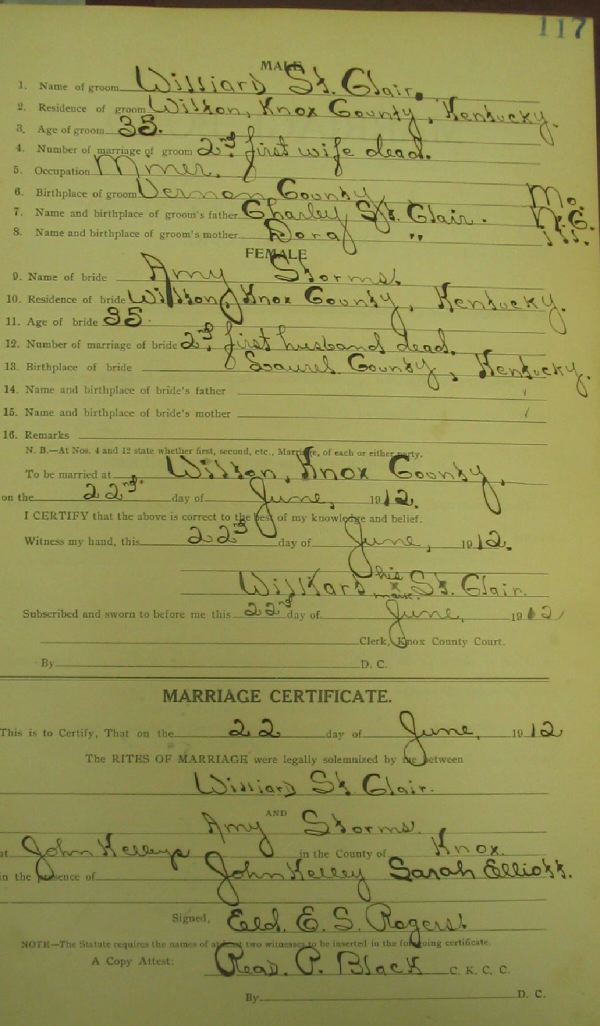 117
MALE
1. Name of groom Williard St. Clair.
2. Residence of groom Wilton, Knox County, Kentucky.
3. Age of groom 35.
4. Number of marriage of groom 2nd. first wife dead.
5. Occupation Miner.
6. Birthplace of groom Vernon County Mo.
7. Name and birthplace of groom's father Charley St. Clair. N.C.
8. Name and birthplace of groom's mother Dora "
FEMALE
9. Name of bride Amy Storms.
10. Residence of bride Wilton, Knox County, Kentucky.
11. Age of bride 35.
12. Number of marriage of bride 2nd, first husband dead.
13. Birthplace of bride Laurel County, Kentucky.
14. Name and birthplace of bride's father
15. Name and birthplace of bride's mother
16. Remarks
N. B.—At Nos. 4 and 12 state whether first, second, etc., Marriage, of each or either party.
To be married at Wilton, Knox County,
on the 22nd. day of June, 1912.
I CERTIFY that the above is correct to the best of my knowledge and belief.
Witness my hand, this 22nd day of June, 1912.
Williard his x mark St. Clair.
Subscribed and sworn to before me this 22nd day of June, 1912
Clerk, Knox County Court.
By D. C.
MARRIAGE CERTIFICATE.
This is to Certify, That on the 22 day of June, 1912
The RITES OF MARRIAGE were legally solemnized by me between
Williard St Clair.
AND
Amy Storms.
at John Kelleys in the County of Knox.
in the presence of John Kelley Sarah Elliott.
Signed, Eld. E. S. Rogers.
NOTE—The Statute requires the names of at least two witnesses to be inserted in the foregoing certificate.
A Copy Attest: Read. P. Black C. K. C. C.
By D. C.